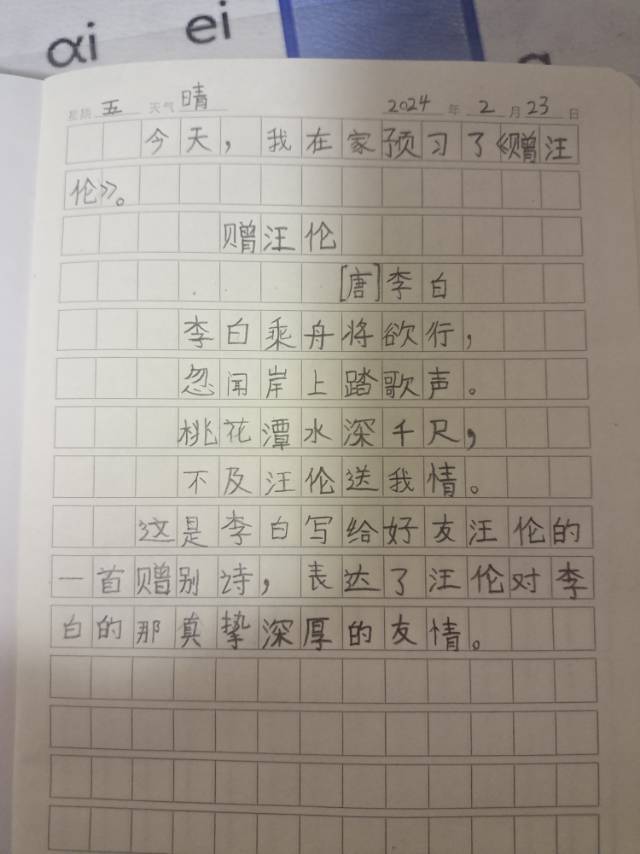 ɑi ei
星期 五 天气 晴 2024 年 2 月 23 日
今天，我在家预习了《赠汪
伦》。
赠汪伦
[唐]李白
李白乘舟将欲行，
忽闻岸上踏歌声。
桃花潭水深千尺，
不及汪伦送我情。
这是李白写给好友汪伦的
一首赠别诗，表达了汪伦对李
白的那真挚深厚的友情。